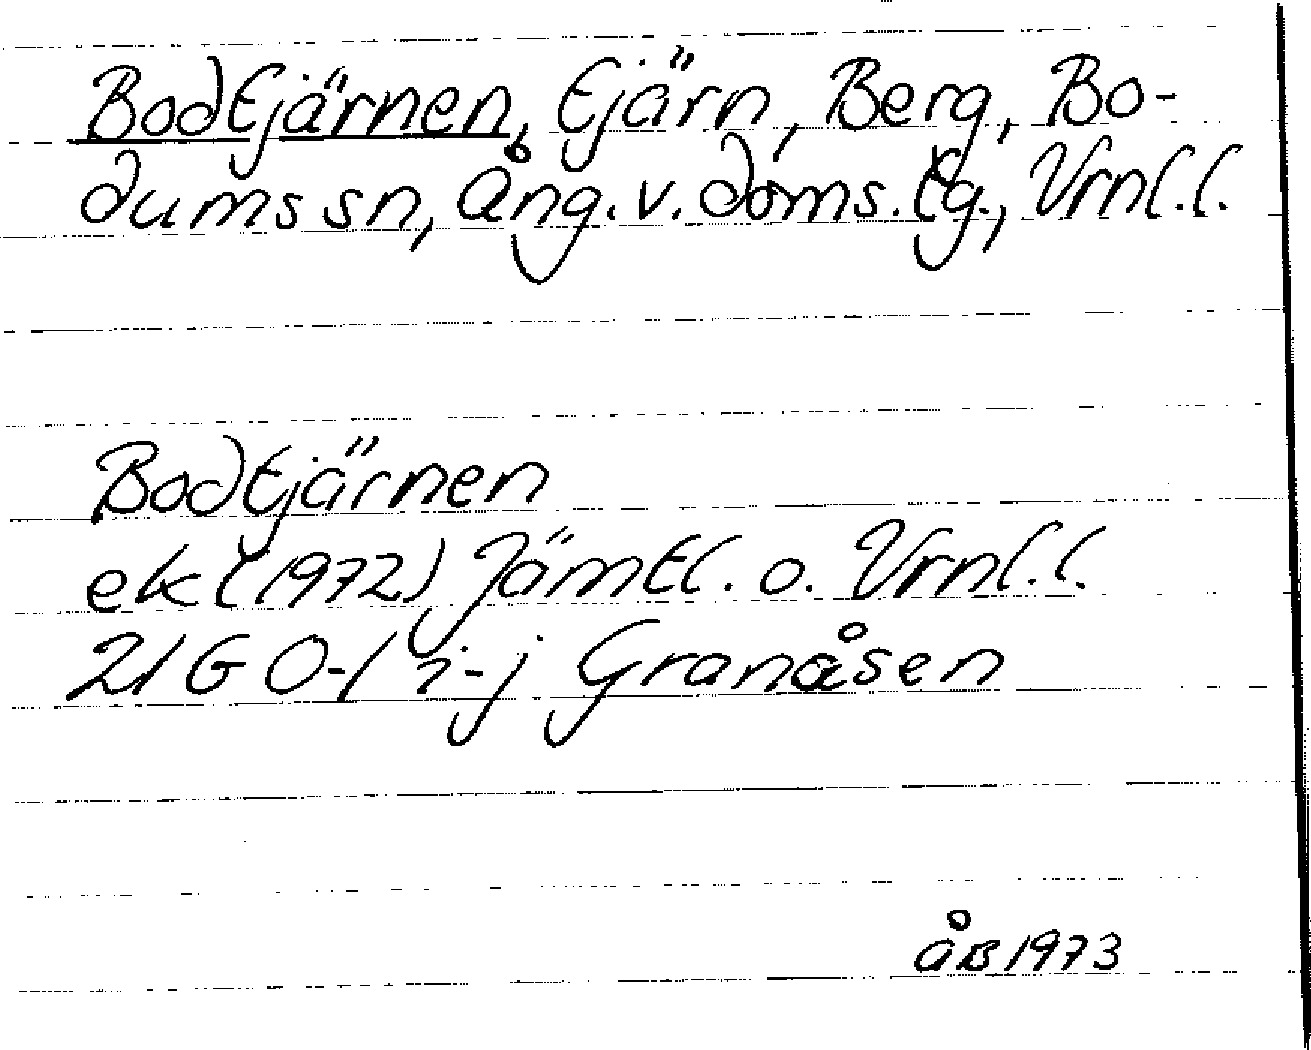 Bodtjärnen, tjärn, Berg, Bo-
dums sn, Ång. v. doms. tg., Vrnl.l.
Bodtjärnen
ek (1972) Jämtl. o. Vrnl.l.
21 G 0-1 i-j Granåsen
ÅB 1973